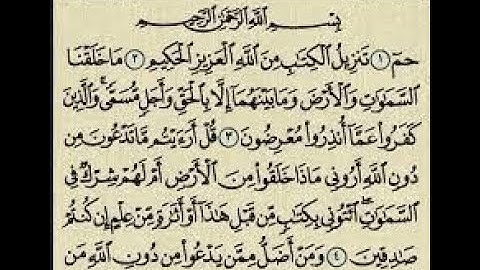 بِسْمِ اللَّهِ الرَّحْمَٰنِ الرَّحِيمِ
حمٓ ١ تَنزِيلُ الْكِتَابِ مِنَ اللَّهِ الْعَزِيزِ الْحَكِيمِ ٢ مَا خَلَقْنَا
السَّمَاوَاتِ وَالْأَرْضَ وَمَا بَيْنَهُمَا إِلَّا بِالْحَقِّ وَأَجَلٍ مُّسَمًّى ۚ وَالَّذِينَ
كَفَرُوا عَمَّا أُنذِرُوا مُعْرِضُونَ ٣ قُلْ أَرَءَيْتُم مَّا تَدْعُونَ مِن
دُونِ اللَّهِ أَرُونِي مَاذَا خَلَقُوا مِنَ الْأَرْضِ أَمْ لَهُمْ شِرْكٌ فِي
السَّمَاوَاتِ ۖ ائْتُونِي بِكِتَابٍ مِّن قَبْلِ هَٰذَا أَوْ أَثَارَةٍ مِّنْ عِلْمٍ إِن كُنتُمْ
صَادِقِينَ ٤ وَمَنْ أَضَلُّ مِمَّن يَدْعُوا مِن دُونِ اللَّهِ مَن